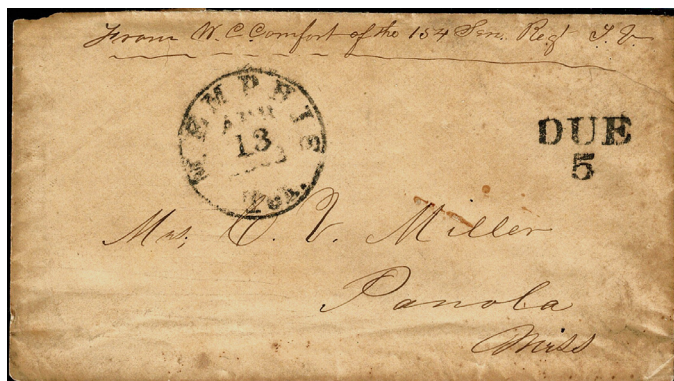 From W. C. Comfort of the 154 Sen. Reg't T. V.
MEMPHIS
APR
13
1862
Ten.
DUE
5
Mrs, C. V. Miller
Panola
Miss